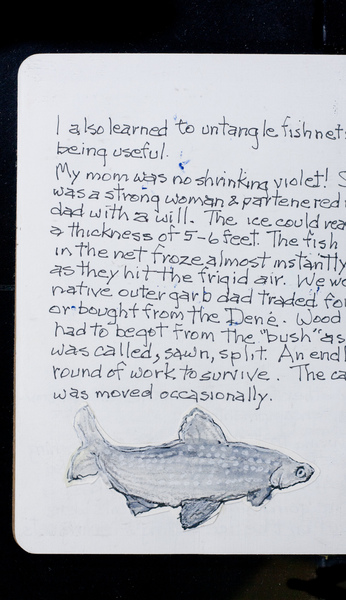 I also learned to untangle fishnets
being useful.
My mom was no shrinking violet! S
was a strong woman & partenered
dad with a will. The ice could rea
a thickness of 5-6 feet. The fish
in the net froze almost instantly
as they hit the frigid air. We wo
native outer garb dad traded for
or bought from the Dené. Wood
had to begot from the "bush" as
was called, sawn, split. An endl
round of work to survive. The ca
was moved occasionally.